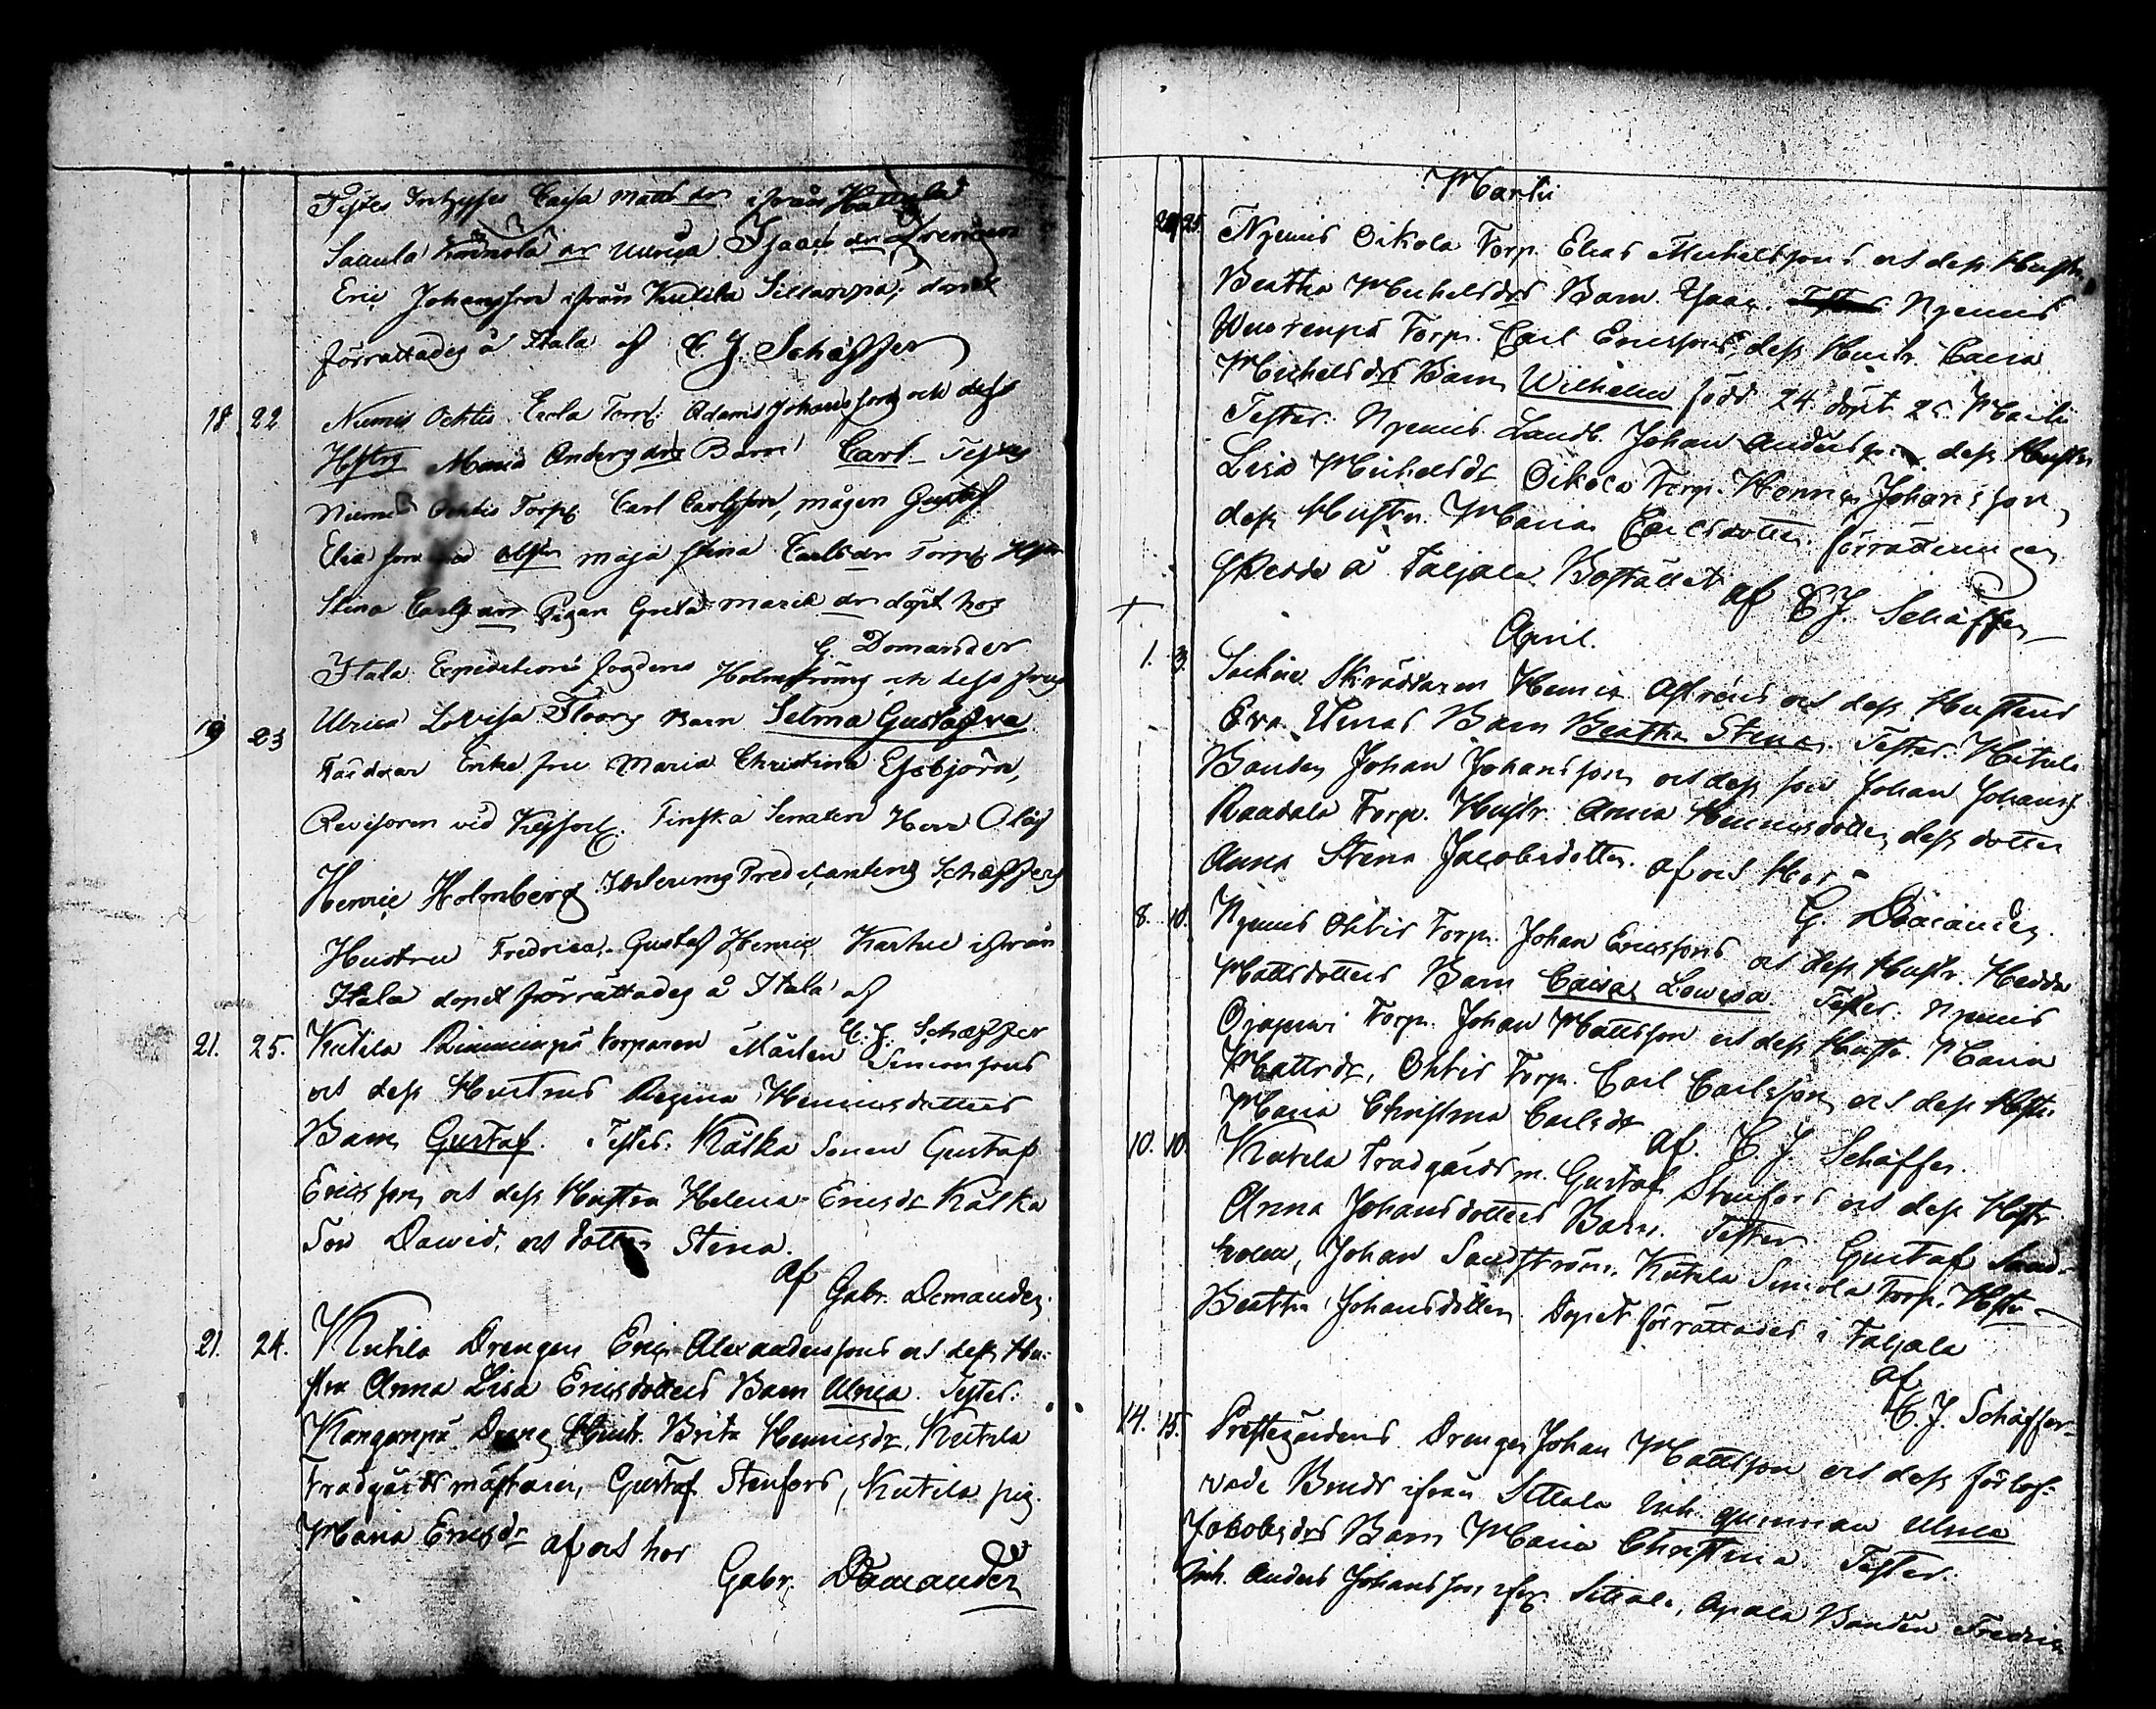 Testes Inhyses Caisa Matts dr ifrån Hattula
Saaula dr Ulrica Isaacs dr Drengen
Eric Johansson ifrån Kutila Sillanpää; dopet
förrättades å Itala af C. J. Schäffer
18 22 Niemis Ochtis Torp: Adam Johanssons och dess
Hustrus Maria Anders drs Barn Carl Testes
Niemis Ochtis Torp. Carl Carlsson, mågen Gustaf
Eliasson Maja Stina Carls dr Torp. Hustr
Stina Carls dr Pigan Greta Maria dr döpt hos
G Domander
Itala Expeditions fogdens Holmström och dess fru
19 23 Ulrica Lovisa Floors Barn Selma Gustafva
Faddrar Enke fru Maria Christina Essbjörn,
Revisoren vid Kejserl. Finska Senaten Herr Olof
Henric Holmberg Predicantens Schæffers
Hustru Fredrica. Gustaf Henric Karhu ifrån
Itala dopet förrättades å Itala af
C. J. Schæffer
21. 25. Kutila Rimminpä torparen Mårten Simonsons
och dess Hustrus Regina Henricsdotters
Barn Gustaf. Testes: Kålka Sonen Gustaf
Ericsson, och dess Hustru Helena Ericsdr Kålka
Son Dawid, och dotter Stina.
af Gabr. Domander.
21. 24. Kutila Drengen Eric Alexanderssons och dess Hu-
stru Anna Lisa Ericsdotters Barn Ulrica. Testes:
Kanganpä Dreng Hustr. Brita Henricsdr, Kutila
Tradgårdsmästaren, Gustaf Stenfors, Kutila pig.
Maria Ericsdr af och hos
Gabr. Domander
Martii
24 25. Nyemis Oikola Torp. Elias Michelssons och dess Hustr
Beatha Michelsdrs Barn. Isaac. Nyemis
Torp. Carl Ericssons, dess Hustr. Caisa
Michelsdrs Barn Wilhelm född 24 döpt 25. Martii
Testes. Nyemis Landb. Johan Andersson dess Hustru
Lisa Michelsdr Oikola Torp. Henric Johansson,
dess Hustru Maria Carlsdotter. förrättningen
skedde å Taljala Bostället af C J. Schäffer
April.
1. 3. Skräddaren Henric Astréns och dess Hustrus
Eva Barn Beatha Stina. Testes. Hitula
Bonden Johan Johansson och dess son Johan Johanss
Raadala Torp. Hustr. Anna Henricsdotter, dess dotter
Anna Stina Jacobsdotter. af och Hos
G. Domander.
8. 10. Nyemis Ohtis Torp. Johan Ericssons och dess Hustr. Hedda
Mattsdotters Barn Caisa Lowisa Testes: Nyemis
Ojapuri Torp. Johan Mattsson och dess Hustr. Maria
Mattsdr, Ohtis Torp. Carl Carlsson och dess Hustr.
Maria Christina Carlsdr
af. C J. Schäffer.
10. 10. Kutila Tradgårdsm. Gustaf Stenfors och dess Hustr
Anna Johansdotters Barn. Testes Gustaf Sand-
holm, Johan Sandström. Kutila Simola Torp. Hustr
Beatha Johansdotter Dopet förrättades i Taljala
af C. J. Schäffer
14. 15. Prestegårdens Drengen Johan Mattsson och dess förlof-
vade Brud ifrån Sittala Inh. qvinnan Ulrica
Jakobsdrs Barn Maria Christina. Testes.
Inh. Anders Johansson ifr. Sittala, Apala Bonden Fredric